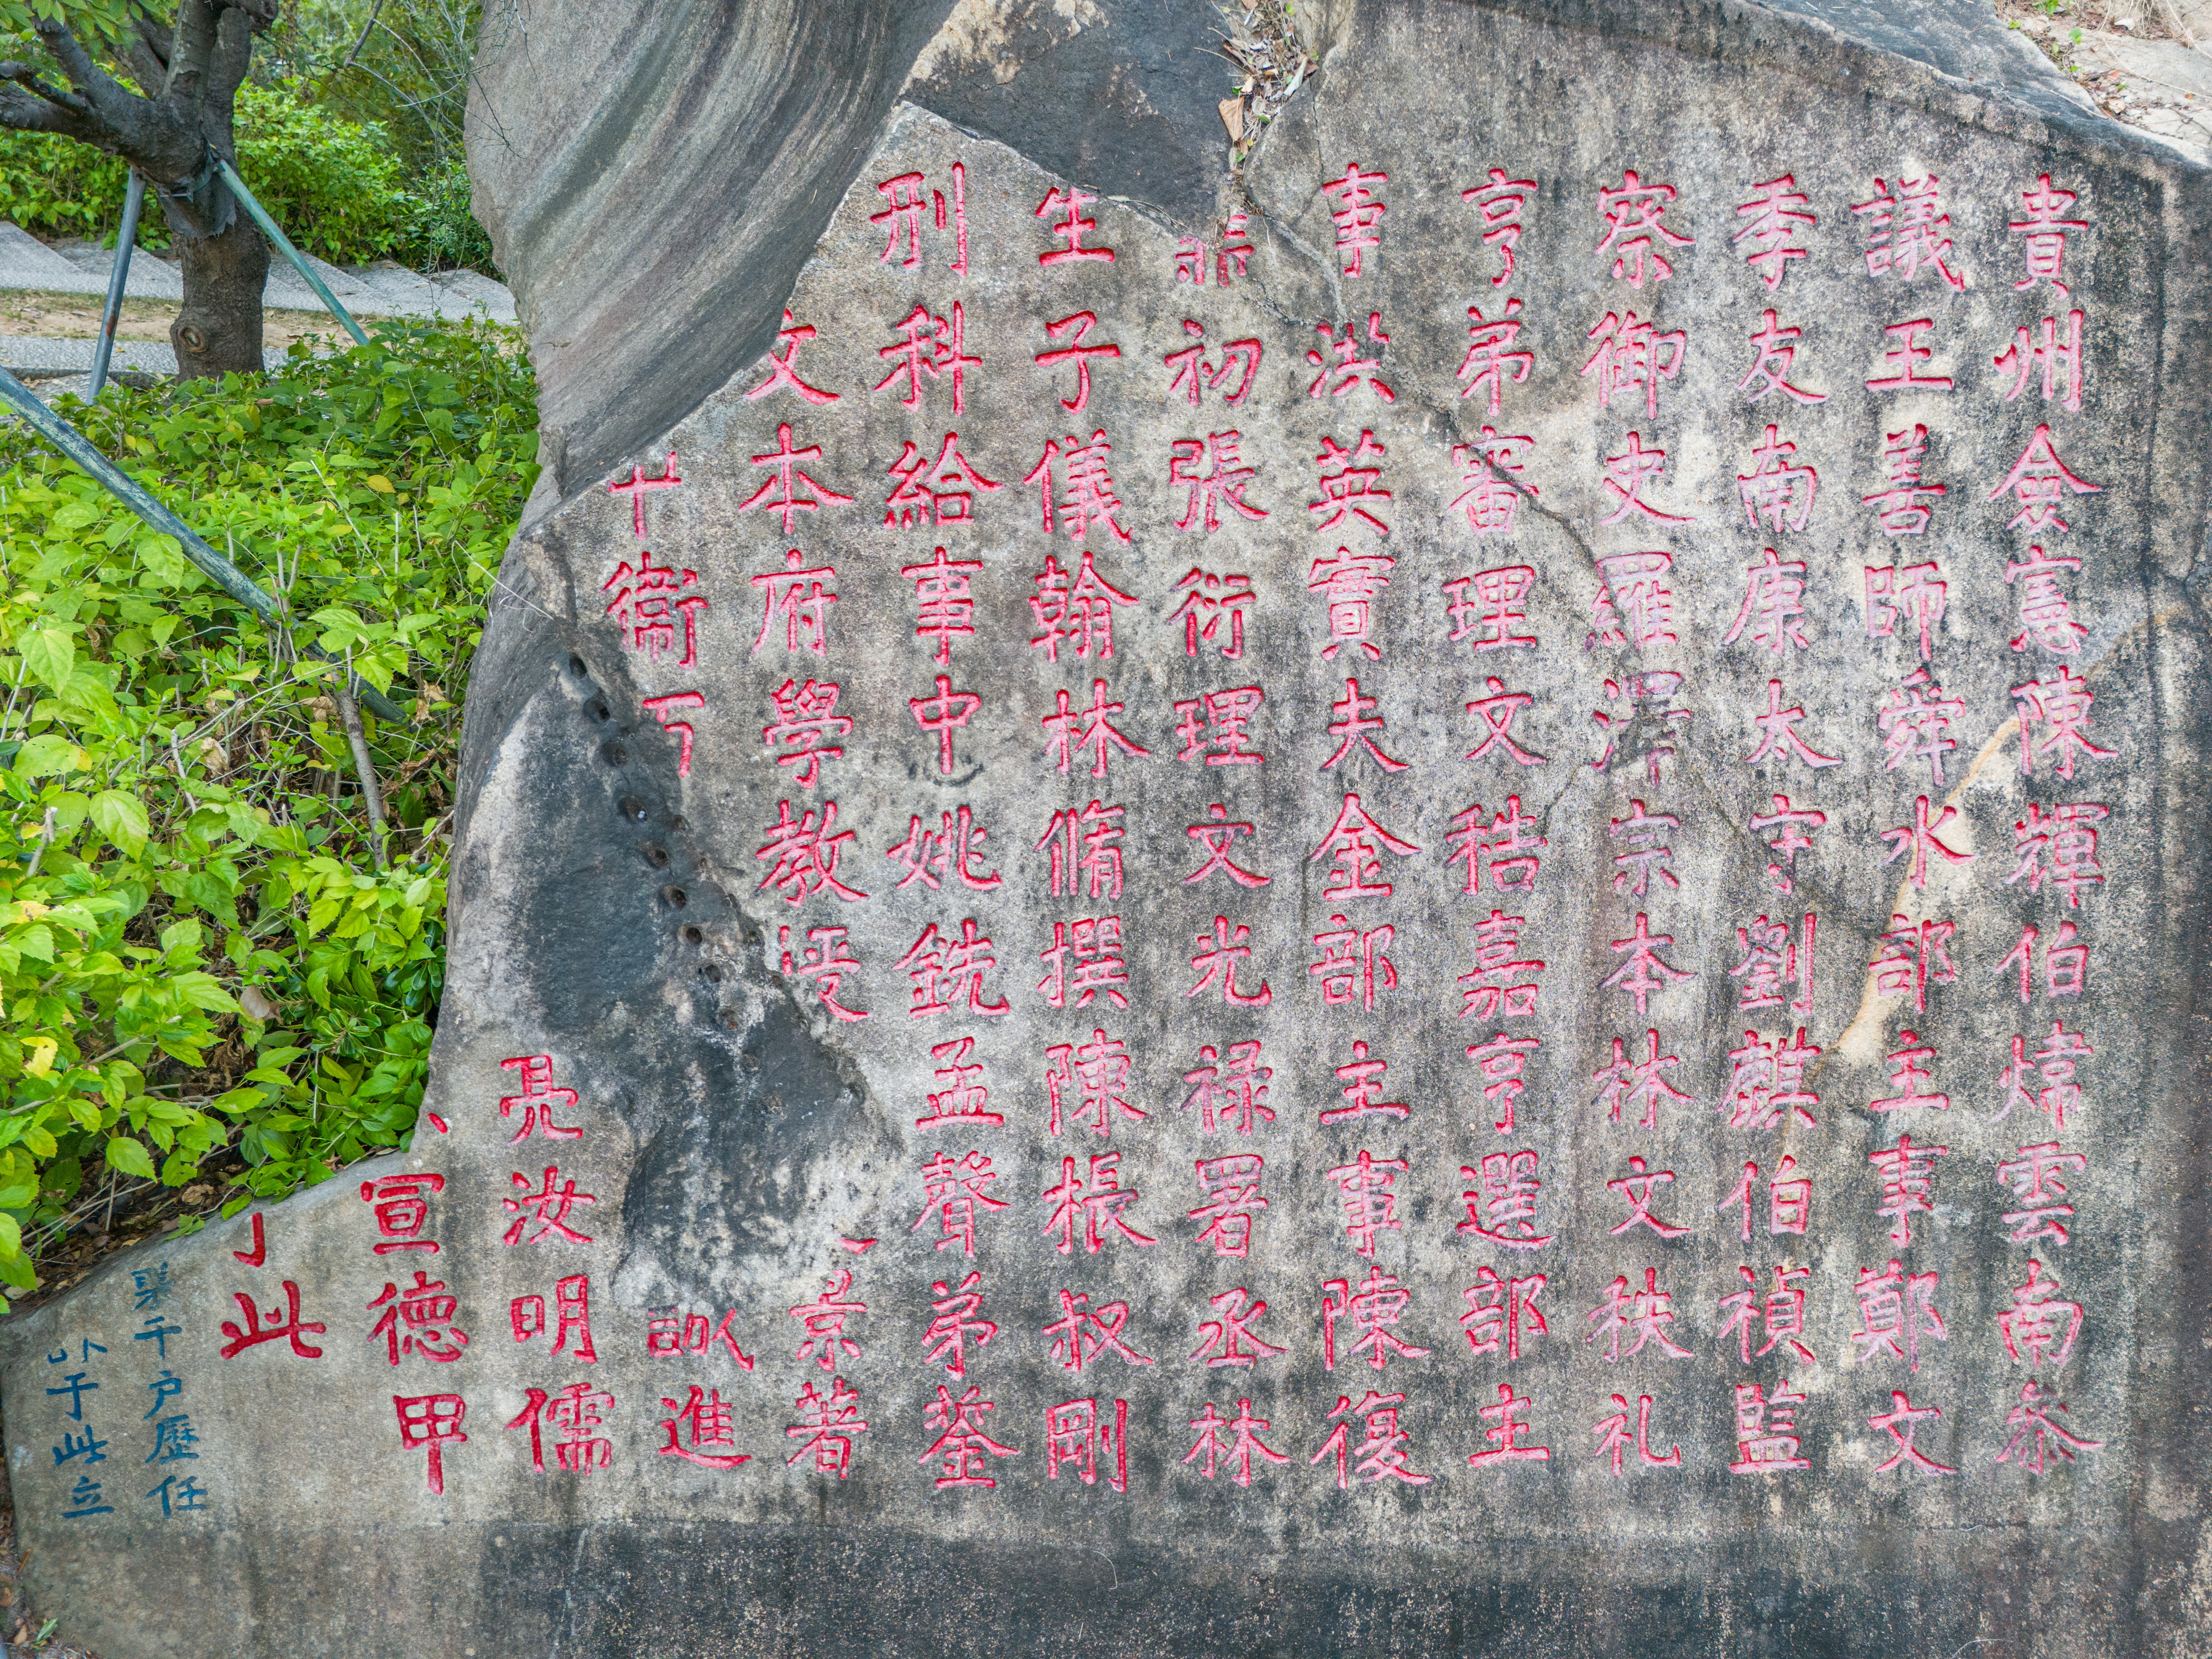 貴州僉憲陳輝伯煒雲南叅
議王善師舜水部主事鄭文
季友南康太守劉麒伯禎監
察御史羅澤宗本林文秩礼
亨弟審理文秸嘉亨選部主
事洪英實夫金部主事陳復
初張衍理文光祿署丞林
生子儀翰林脩撰陳棖叔剛
刑科給事中姚銑孟聲弟蓥
文本府學教授景著
衞進
亮汝明儒
宣德甲
此
千户歷任
于此立